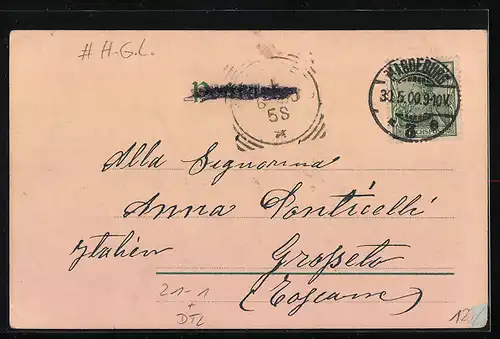 # H.G.L.
MAGDEBURG
30.5.00.9-10V.
5S
Alla Signorina
Anna Ponticelli
Italien Grosseto
(Toscana)
21-1
+
DTL
12